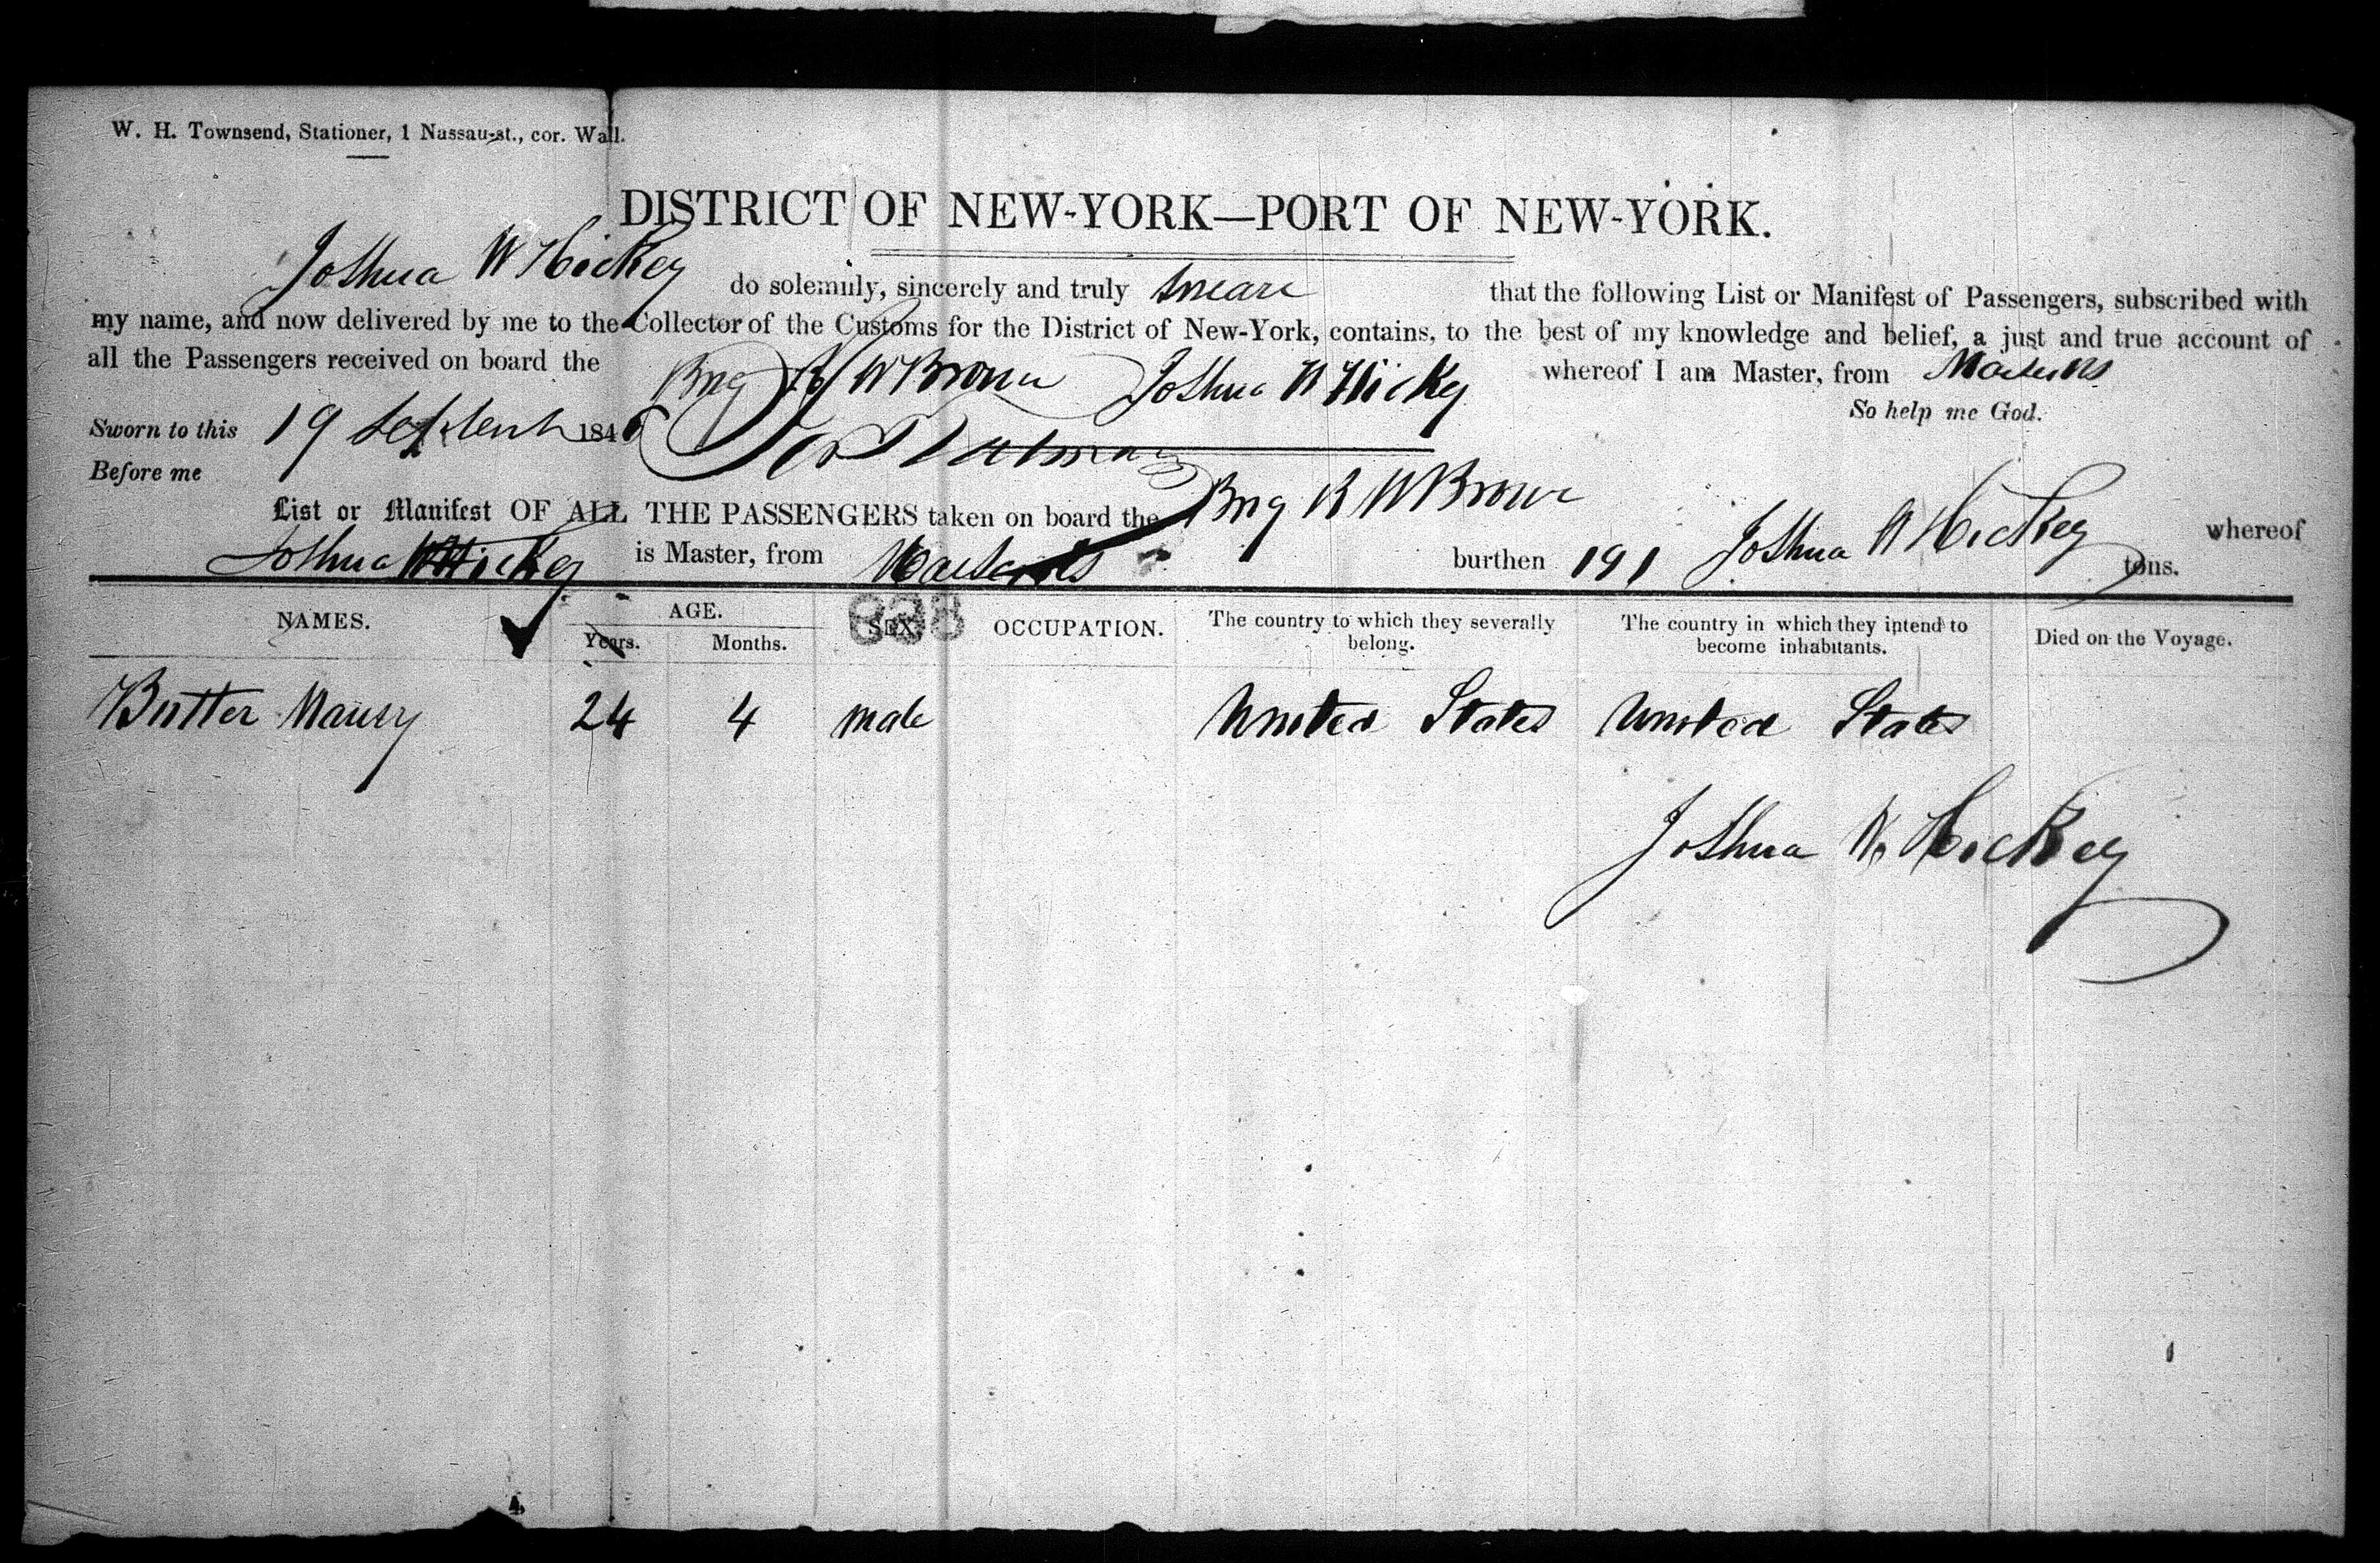 W. H. Townsend, Stationer, 1 Nassau-st., cor. Wall.
DISTRICT OF NEW-YORK—PORT OF NEW-YORK.
Joshua W Hickey do solemnly, sincerely and truly swear that the following List or Manifest of Passengers, subscribed with
my name, and now delivered by me to the Collector of the Customs for the District of New-York, contains, to the best of my knowledge and belief, a just and true account of
all the Passengers received on board the Brig R W Brown Joshua W Hickey whereof I am Master, from
So help me God.
Sworn to this 19 September 1846
Before me
List or Manifest OF ALL THE PASSENGERS taken on board the Brig R W Brown whereof
Joshua W Hickey is Master, from burthen 191 Joshua W Hickey tons.
NAMES. AGE. SEX. OCCUPATION. The country to which they severally belong. The country in which they intend to become inhabitants. Died on the Voyage.
Years. Months.
838
Butter Maury 24 4 male United States United States
Joshua W. Hickey